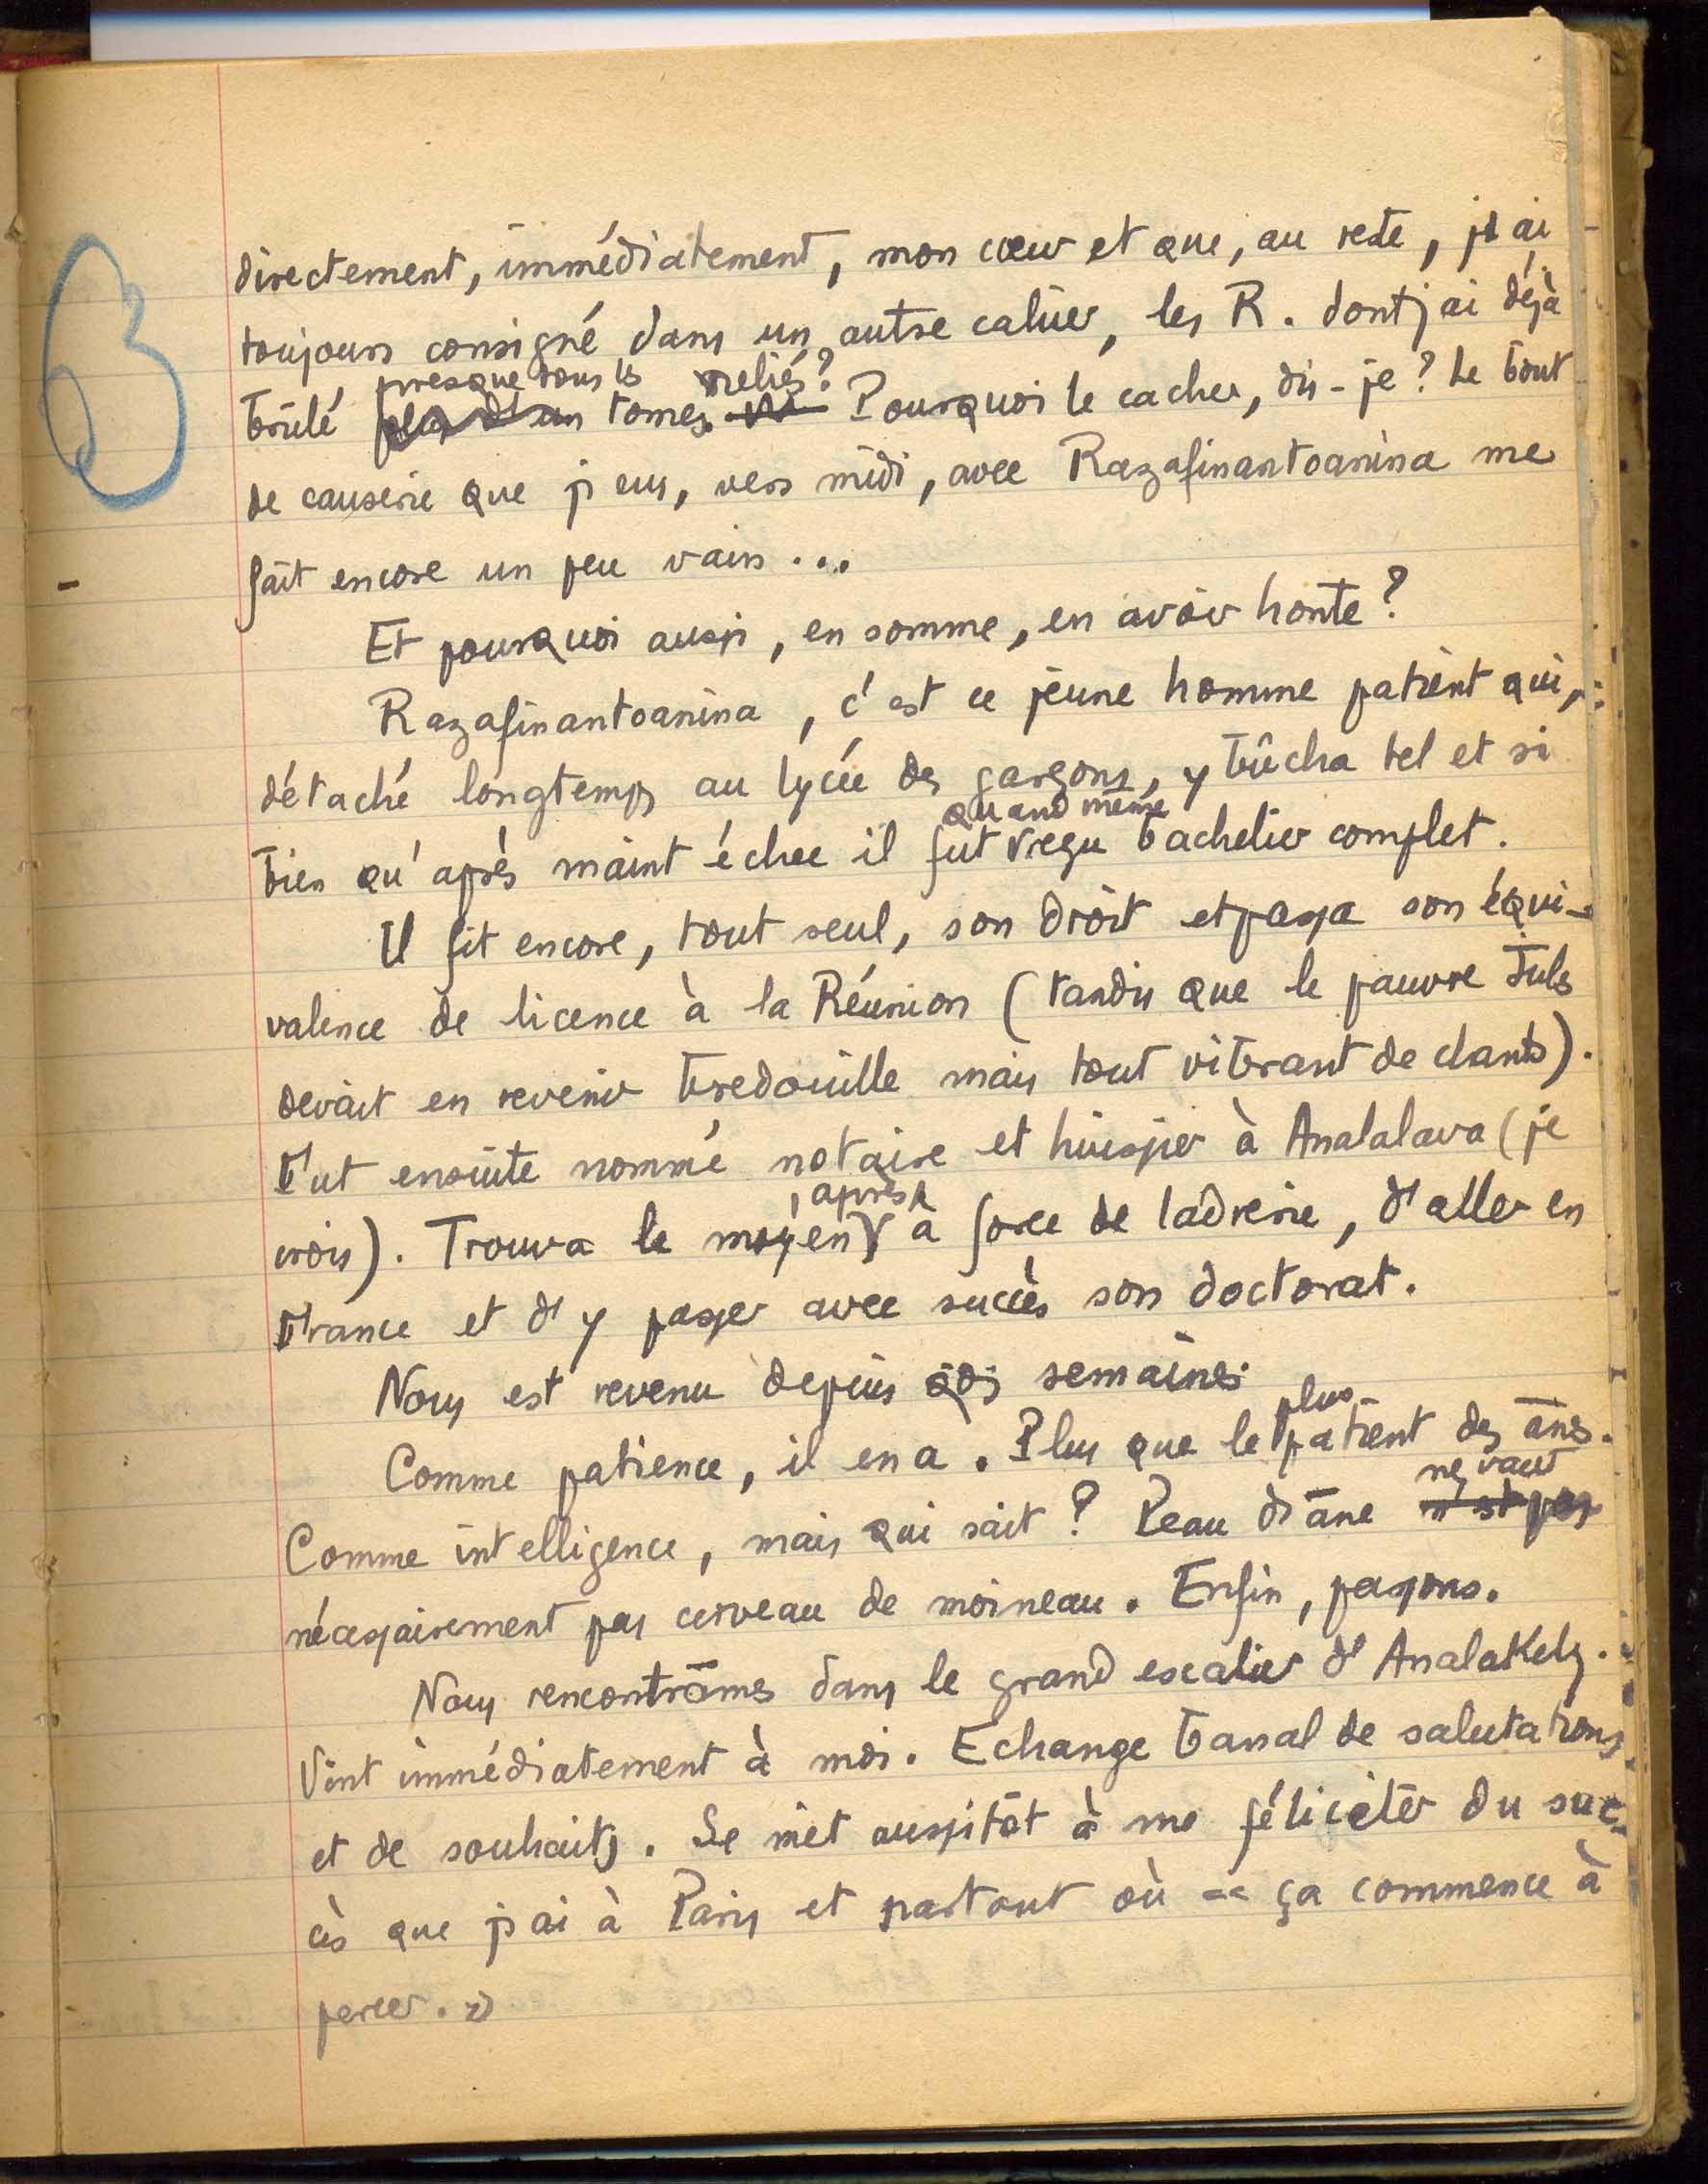 directement, immédiatement, mon cœur et que, au reste, j'ai
toujours consigné dans un autre cahier, les R. dont j'ai déjà
presque tous les reliés?
brûlé plus d'un tomes. Pourquoi le cacher, dis-je? Le bout
de causerie que j'eus, vers midi, avec Razafinantoanina me
fait encore un peu vain...
Et pourquoi aussi, en somme, en avoir honte?
Razafinantoanina, c'est ce jeune homme patient qui,
détaché longtemps au lycée des garçons, y bûcha tel et si
quand même
bien qu'après maint échec il fut reçu bachelier complet.
Il fit encore, tout seul, son droit et passa son équi-
valence de licence à la Réunion (tandis que le pauvre Jules
devait en revenir bredouille mais tout vibrant de chants).
Fut ensuite nommé notaire et huissier à Analalava (je
, après,
crois). Trouva le moyen à force de ladrerie, d'aller en
France et d'y passer avec succès son doctorat.
Nous est revenu depuis qqs semaines.
plus
Comme patience, il en a. Plus que le patient des ânes.
ne vaut
Comme intelligence, mais qui sait? Peau d'âne n'est pas
nécessairement pas cerveau de moineau. Enfin, passons.
Nous rencontrâmes dans le grand escalier d'Analakely.
Vint immédiatement à moi. Echange banal de salutations
et de souhaits. Se met aussitôt à me féliciter du suc-
cès que j'ai à Paris et partout où « ça commence à
percer. »